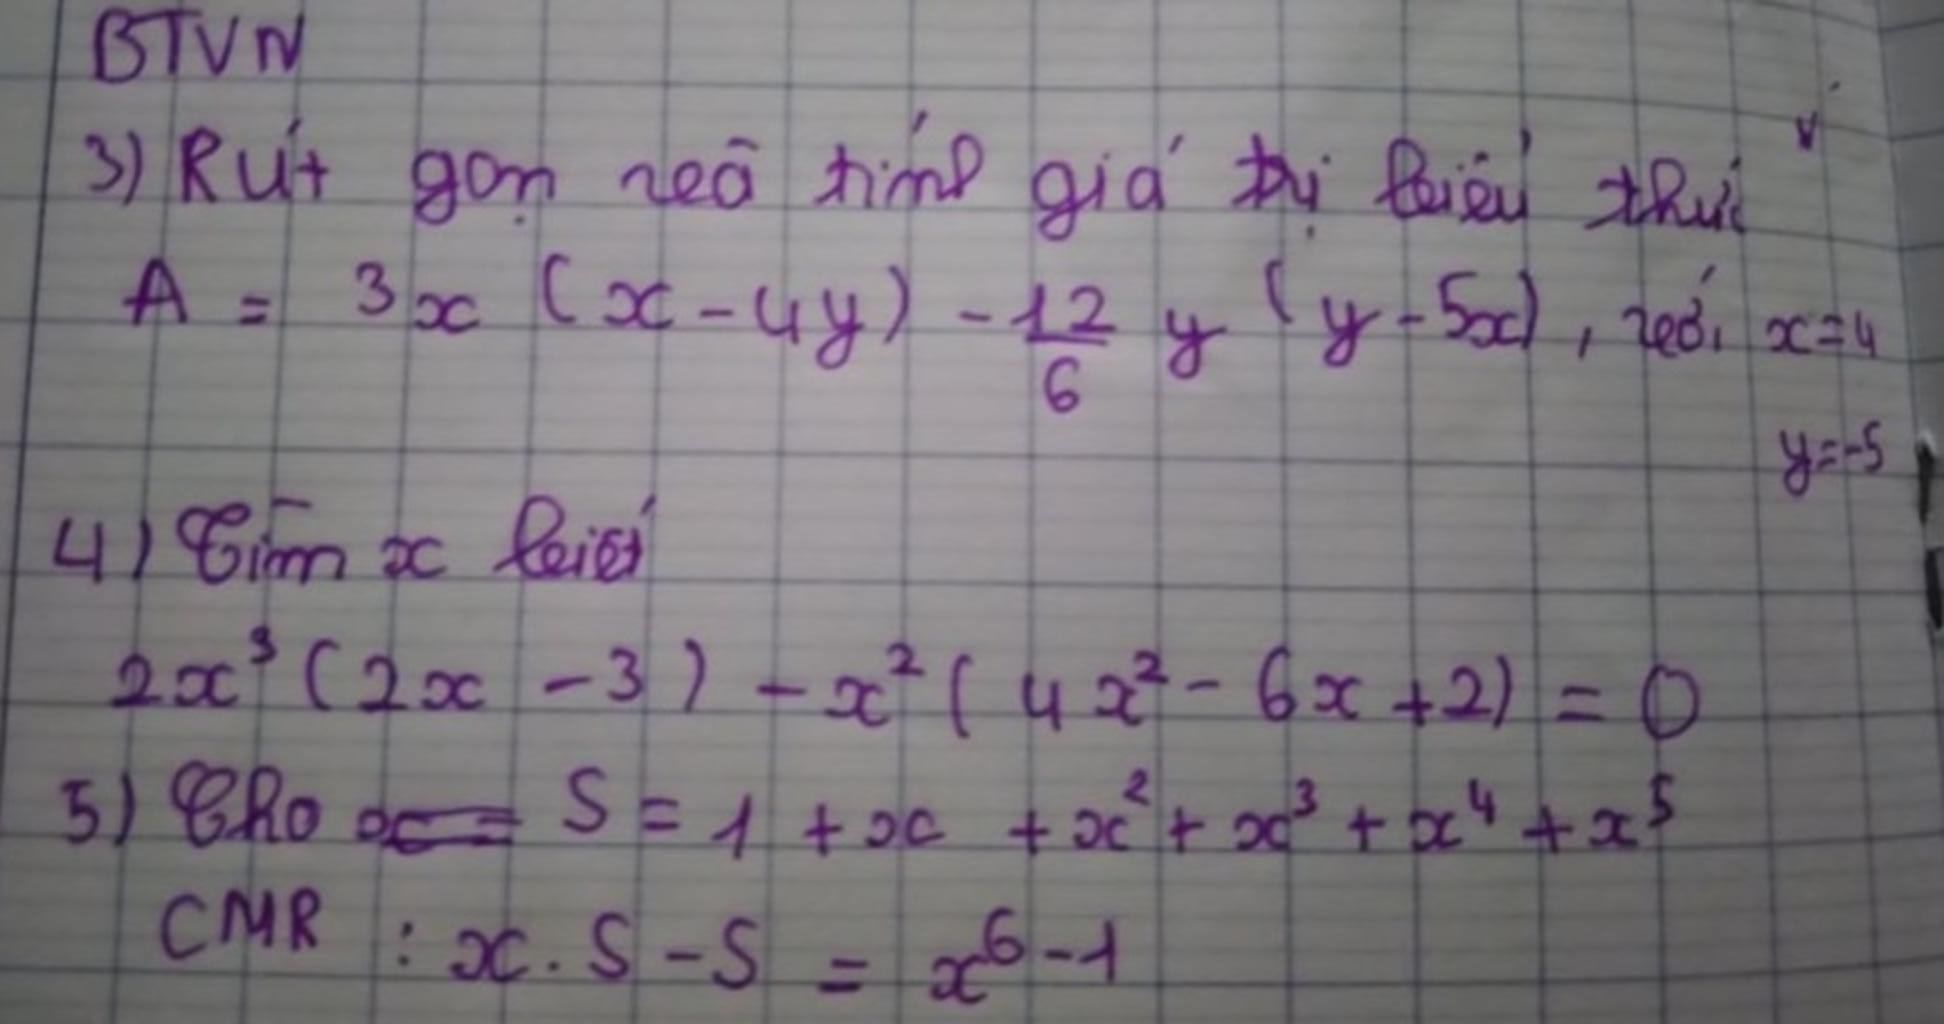 BTVN
3) Rút gọn và tính giá trị biểu thức
A = 3x (x - 4y) - 12/6 y (y - 5x), với x = 4
y = -5
4) Tìm x biết
2x³ (2x - 3) - x² (4x² - 6x + 2) = 0
5) Cho S = 1 + x + x² + x³ + x⁴ + x⁵
CMR : x . S - S = x⁶ - 1